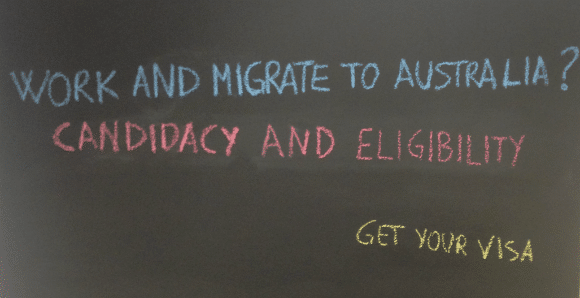 WORK AND MIGRATE TO AUSTRALIA?
CANDIDACY AND ELIGIBILITY
GET YOUR VISA